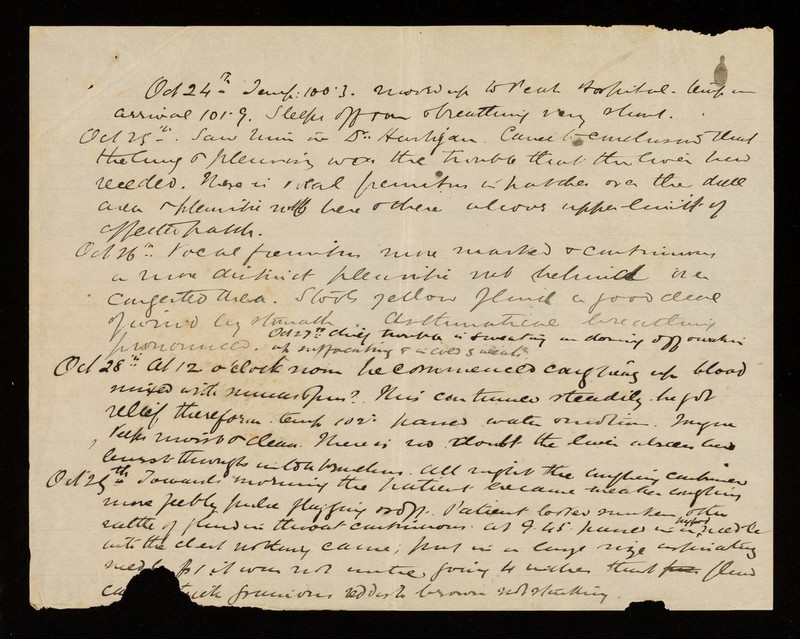 Oct 24th Temp: 100.3. moved up to Peak Hospital. temp on
arrival 101.9. Sleeps off & on breathing very short.
Oct 25th. Saw him in Dr. Hartigan. Came to conclusion that
the lung & pleurisy was the trouble that the liver had
receded. There is vocal fremitus in patches over the dull
area & pleuritic rub here & there above upper limit of
hepatic patch.
Oct 26th. Vocal fremitus more marked & continuous
a more distinct pleuritic rub behind over
congested area. Stools yellow fluid a good deal
of wind by stomach. Asthmatical breathing
pronounced. Oct 27th chief trouble is sweating on dozing off awakes
up suffocating & in cold sweats
Oct 28th At 12 o'clock noon he commenced coughing up blood
mixed with mucus & pus?. This continued steadily. he got
relief therefrom. temp 102. passed water & motion. Tongue
keeps moist & clean. There is no doubt the liver abscess has
burst through into bronchus. All night the coughing continued
Oct 29th Towards morning the patient became weaker coughing
more feebly pulse flagging on & off. Patient looks sunken & the
rattle of fluid in throat continuous. at 9.45 passed in a hypod needle
into the chest nothing came; put in a large size aspirating
needle & it was not until going 4 inches that fluid
thick grumous reddish brown not stinking.